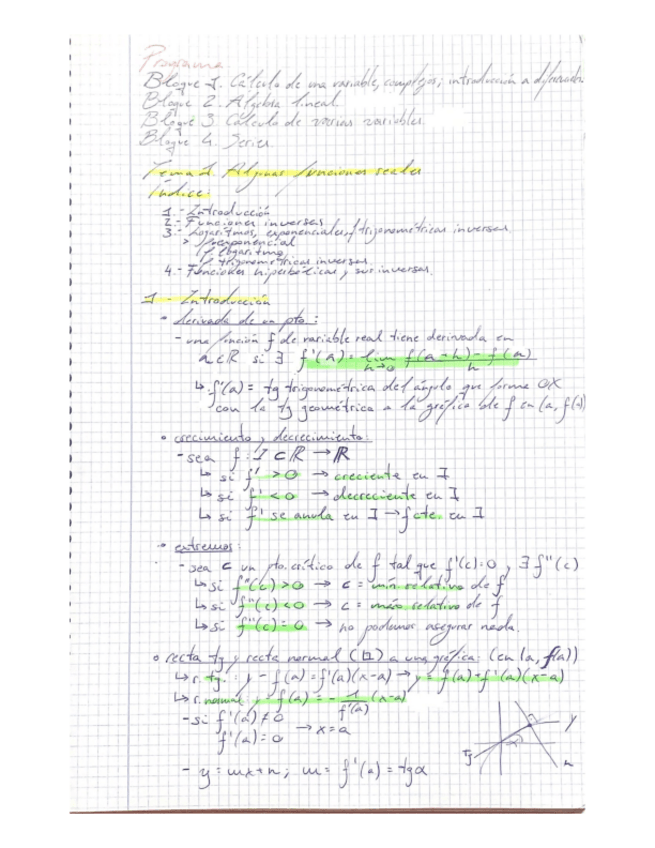 Programa
Bloque 1. Cálculo de una variable, complejos; introducción a diferencia.
Bloque 2. Álgebra lineal.
Bloque 3. Cálculo de varias variables.
Bloque 4. Series.
Tema 1. Algunas funciones reales
Índice:
1.- Introducción
2.- Funciones inversas
3.- Logaritmos, exponenciales, f trigonométricas inversas
> f exponencial
f. logaritmo
f. trigonométricas inversas.
4.- Funciones hiperbólicas y sus inversas.
1 - Introducción
• derivada de un pto:
- una función f de variable real tiene derivada en
a ∈ ℝ si ∃ f'(a) = lim h→0 f(a+h) - f(a) / h
↳ f'(a) = tg trigonométrica del ángulo que forma OX
con la tg geométrica a la gráfica de f en (a, f(a))
• crecimiento y decrecimiento:
- sea f: I ⊂ ℝ → ℝ
↳ si f' > 0 → creciente en I
↳ si f' < 0 → decreciente en I
↳ si f' se anula en I → f cte. en I
• extremos:
- sea c un pto. crítico de f tal que f'(c) = 0, ∃ f''(c)
↳ si f''(c) > 0 → c = mín relativo de f
↳ si f''(c) < 0 → c = máx relativo de f
↳ si f''(c) = 0 → no podemos asegurar nada.
• recta tg y recta normal (⊥) a una gráfica: (en (a, f(a))
↳ r. tg.: y - f(a) = f'(a)(x-a) → y = f(a) + f'(a)(x-a)
↳ r. normal: y - f(a) = - 1/f'(a) (x-a)
- si f'(a) ≠ 0
f'(a) = 0 → x = a
- y = mx + n; m = f'(a) = tg α
y
tg
n